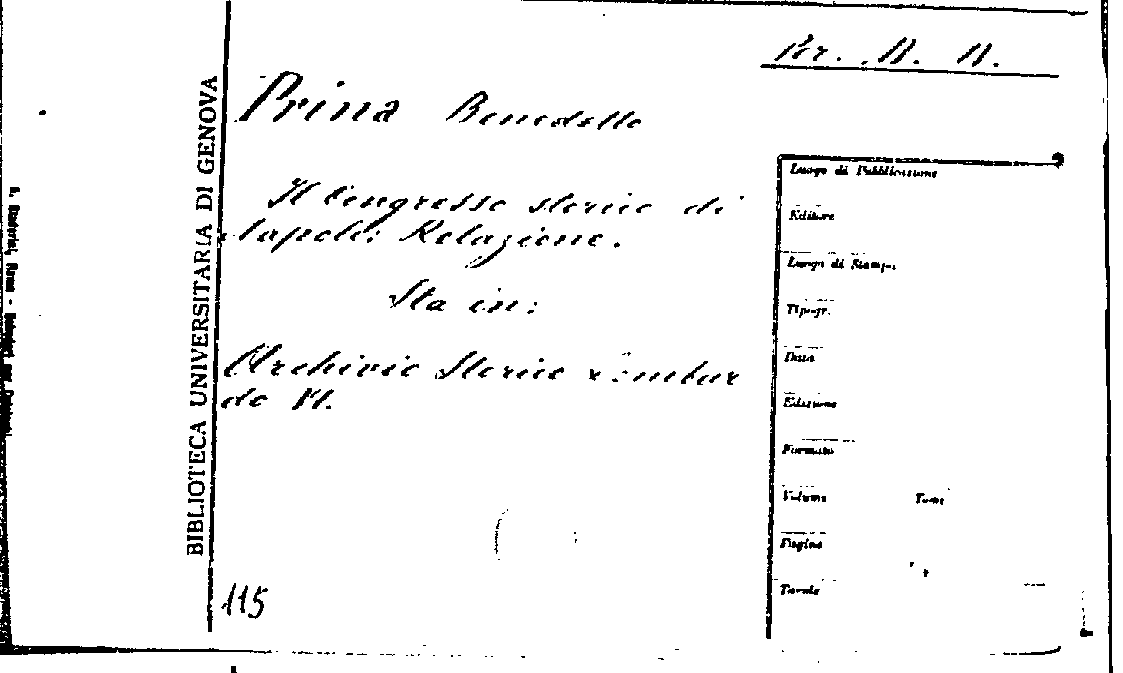 Per. B. II.
BIBLIOTECA UNIVERSITARIA DI GENOVA
Prina Benedetto
Il Congresso storico di
Napoli: Relazione.
Sta in:
Archivio Storico Lombar
do VI.
115
Luogo di Pubblicazione
Editore
Luogo di Stampa
Tipogr.
Data
Edizione
Formato
Volume Tomi
Pagine
Tavole